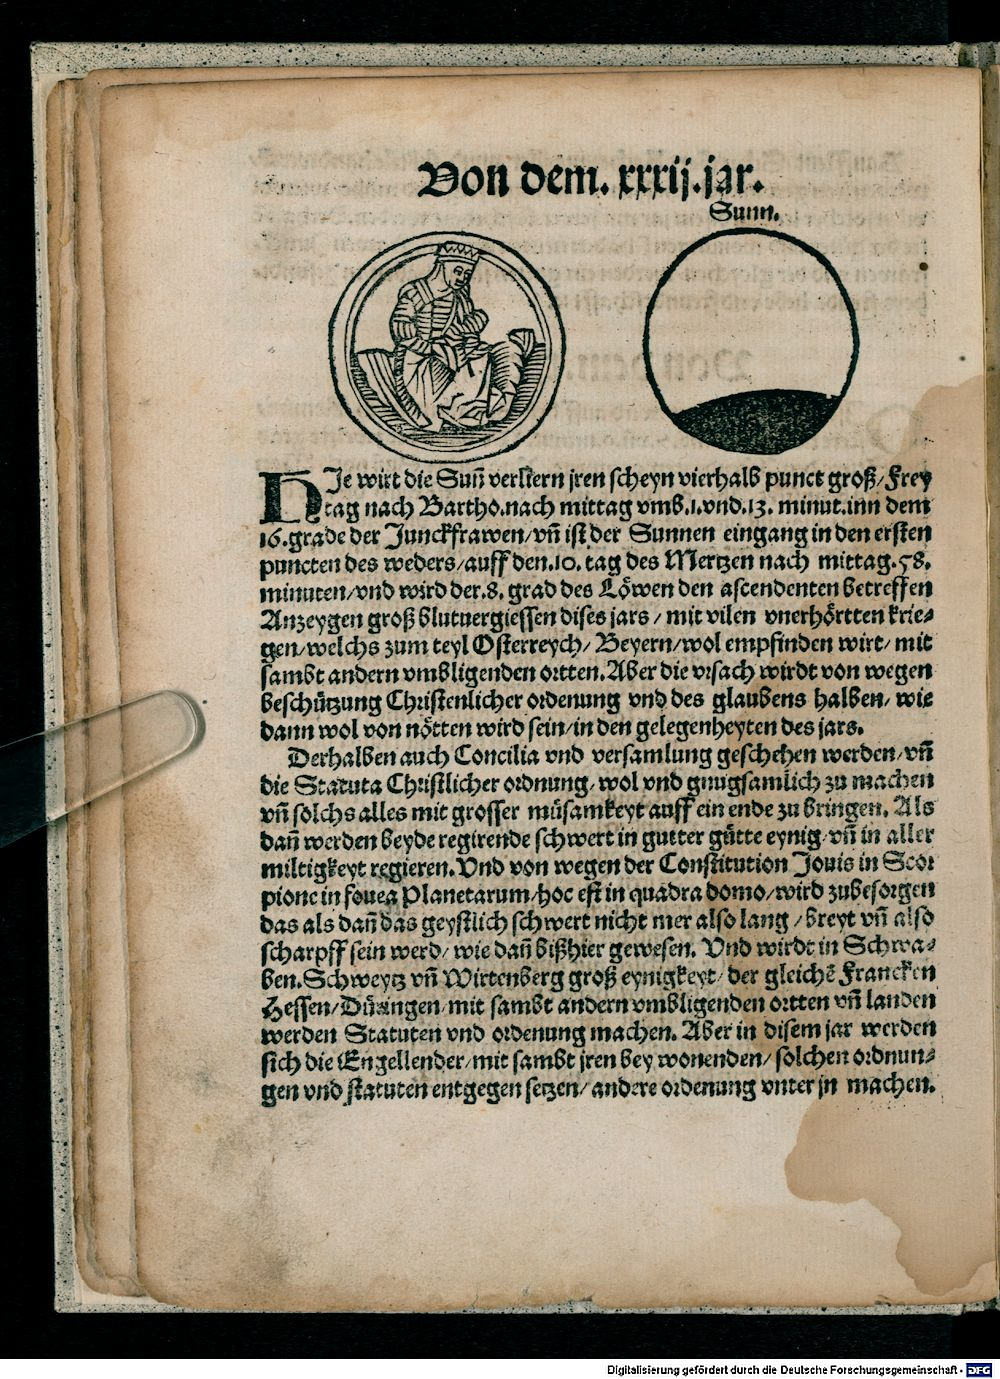 Von dem. xxxij. jar.
Sunn.
HJe wirt die Suñ verliern jren scheyn vierhalb punct groß/ Frey
tag nach Bartho. nach mittag vmb. 1. vnd. 13. minut. inn dem
16. grade der Junckfrawen/ vñ ist der Sunnen eingang in den ersten
puncten des weders/ auff den. 10. tag des Mertzen nach mittag. 58.
minuten/ vnd wird der. 8. grad des Löwen den ascendenten betreffen
Anzeygen groß blutuergiessen dises jars / mit vilen vnerhörtten krie⸗
gen/ welchs zum teyl Osterreych/ Beyern/ wol empfinden wirt/ mit
sambt andern vmbligenden ortten. Aber die vrsach wirdt von wegen
beschützung Christenlicher ordenung vnd des glaubens halben/ wie
dann wol von nötten wird sein/ in den gelegenheyten des jars.
Derhalben auch Concilia vnd versamlung geschehen werden/ vñ
die Statuta Christlicher ordnung/ wol vnd gnugsamlich zu machen
vñ solchs alles mit grosser müsamkeyt auff ein ende zu bringen. Als
dañ werden beyde regirende schwert in gutter gütte eynig/ vñ in aller
miltigkeyt regieren. Vnd von wegen der Constitution Jouis in Scor
pione in fouea Planetarum/ hoc est in quadra domo/ wird zubesorgen
das als dañ das geystlich schwert nicht mer also lang / breyt vñ also
scharpff sein werd/ wie dañ bißhier gewesen. Vnd wirdt in Schwa⸗
ben. Schweytz vñ Wirtenberg groß eynigkeyt/ der gleichē Francken
Hessen/ Düringen/ mit sambt andern vmbligenden ortten vñ landen
werden Statuten vnd ordenung machen. Aber in disem jar werden
sich die Engellender/ mit sambt jren bey wonenden/ solchen ordnun⸗
gen vnd statuten entgegen setzen/ andere ordenung vnter jn machen.
Digitalisierung gefördert durch die Deutsche Forschungsgemeinschaft - DFG